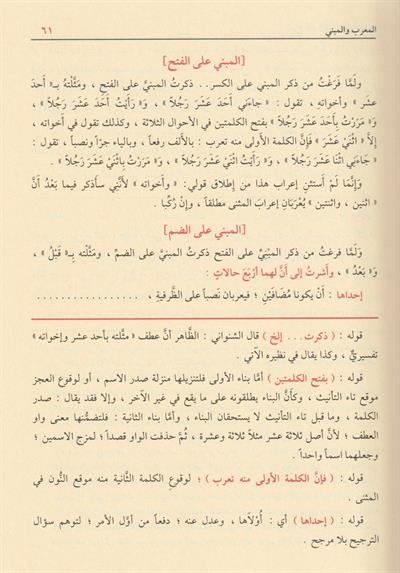 المعرب والمبني ٦١
[المبني على الفتح]
ولَمَّا فَرَغْتُ من ذكر المبني على الكسر.. ذكرتُ المبنيَّ على الفتح ، ومَثَّلْتُه بـ« أَحدَ
عشر » وأخواتِه ، تقول : « جاءني أَحَدَ عَشَرَ رَجُلاً » ، وَ« رَأَيْتُ أَحَدَ عَشَرَ رَجُلاً » ،
وَ« مَرَرْتُ بِأَحَدَ عَشَرَ رَجُلاً » بفتح الكلمتين في الأحوال الثلاثة ، وكذلك تقول في أخواته ،
إِلاَّ « اثْنَيْ عَشَرَ » فَإِنَّ الكلمة الأولى منه تعرب : بالألف رفعاً ، وبالياء جرّاً ونصباً ، تقول :
« جَاءَنِي اثْنَا عَشَرَ رَجُلاً » ، وَ« رَأَيْتُ اثْنَيْ عَشَرَ رَجُلاً » ، وَ« مَرَرْتُ بِاثْنَيْ عَشَرَ رَجُلاً » .
وَإِنَّمَا لَمْ أَستثنِ إعراب هذا من إطلاق قولي : « وأخواته » لأَنَّنِي سأذكر فيما بَعدُ أَنَّ
« اثنين ، واثنتين » يُعْرَبَانِ إعرابَ المثنى مطلقاً ، وإنْ رُكِّبا .
[المبني على الضم]
وَلَمَّا فرغتُ من ذكر المبْنِيِّ على الفتح ذكرتُ المبنيَّ على الضمِّ ، ومَثَّلْتُه بـ« قَبْلُ » ،
وَ« بَعْدُ » ، وأَشرتُ إلى أنَّ لهما أَرْبَعَ حالاتٍ :
إحداها : أَنْ يكونا مُضَافَيْنِ ؛ فيعربان نَصباً على الظَّرفيةِ ، ..................
قوله : ( ذكرت . . . إلخ ) قال الشنواني : الظَّاهر أنَّ عطف « مثَّلته بأحد عشر وإخواته »
تفسيريٌّ ، وكذا يقال في نظيره الآتي .
قوله : ( بفتح الكلمتين ) أمَّا بناء الأولى فلتنزيلها منزلة صدر الاسم ، أو لوقوع العجز
موقع تاء التأنيث ، وكأنَّ البناء يطلقونه على ما يقع في غير الآخر ، وإلا فقد يقال : صدر
الكلمة ، وما قبل تاء التأنيث لا يستحقان البناء ، وأمَّا بناء الثانية : فلتضمُّنها معنى واو
العطف ؛ لأنَّ أصل ثلاثة عشر مثلاً ثلاثة وعشرة ، ثُمَّ حذفت الواو قصداً ؛ لمزج الاسمين ؛
وجعلهما اسماً واحداً .
قوله : ( فإنَّ الكلمة الأولى منه تعرب ) ؛ لوقوع الكلمة الثَّانية منه موقع النُّون في
المثنى .
قوله : ( إحداها ) أي : أُوْلاَها ، وعدل عنه ؛ دفعاً من أوَّل الأمر ؛ لتوهم سؤال
الترجيح بلا مرجح .